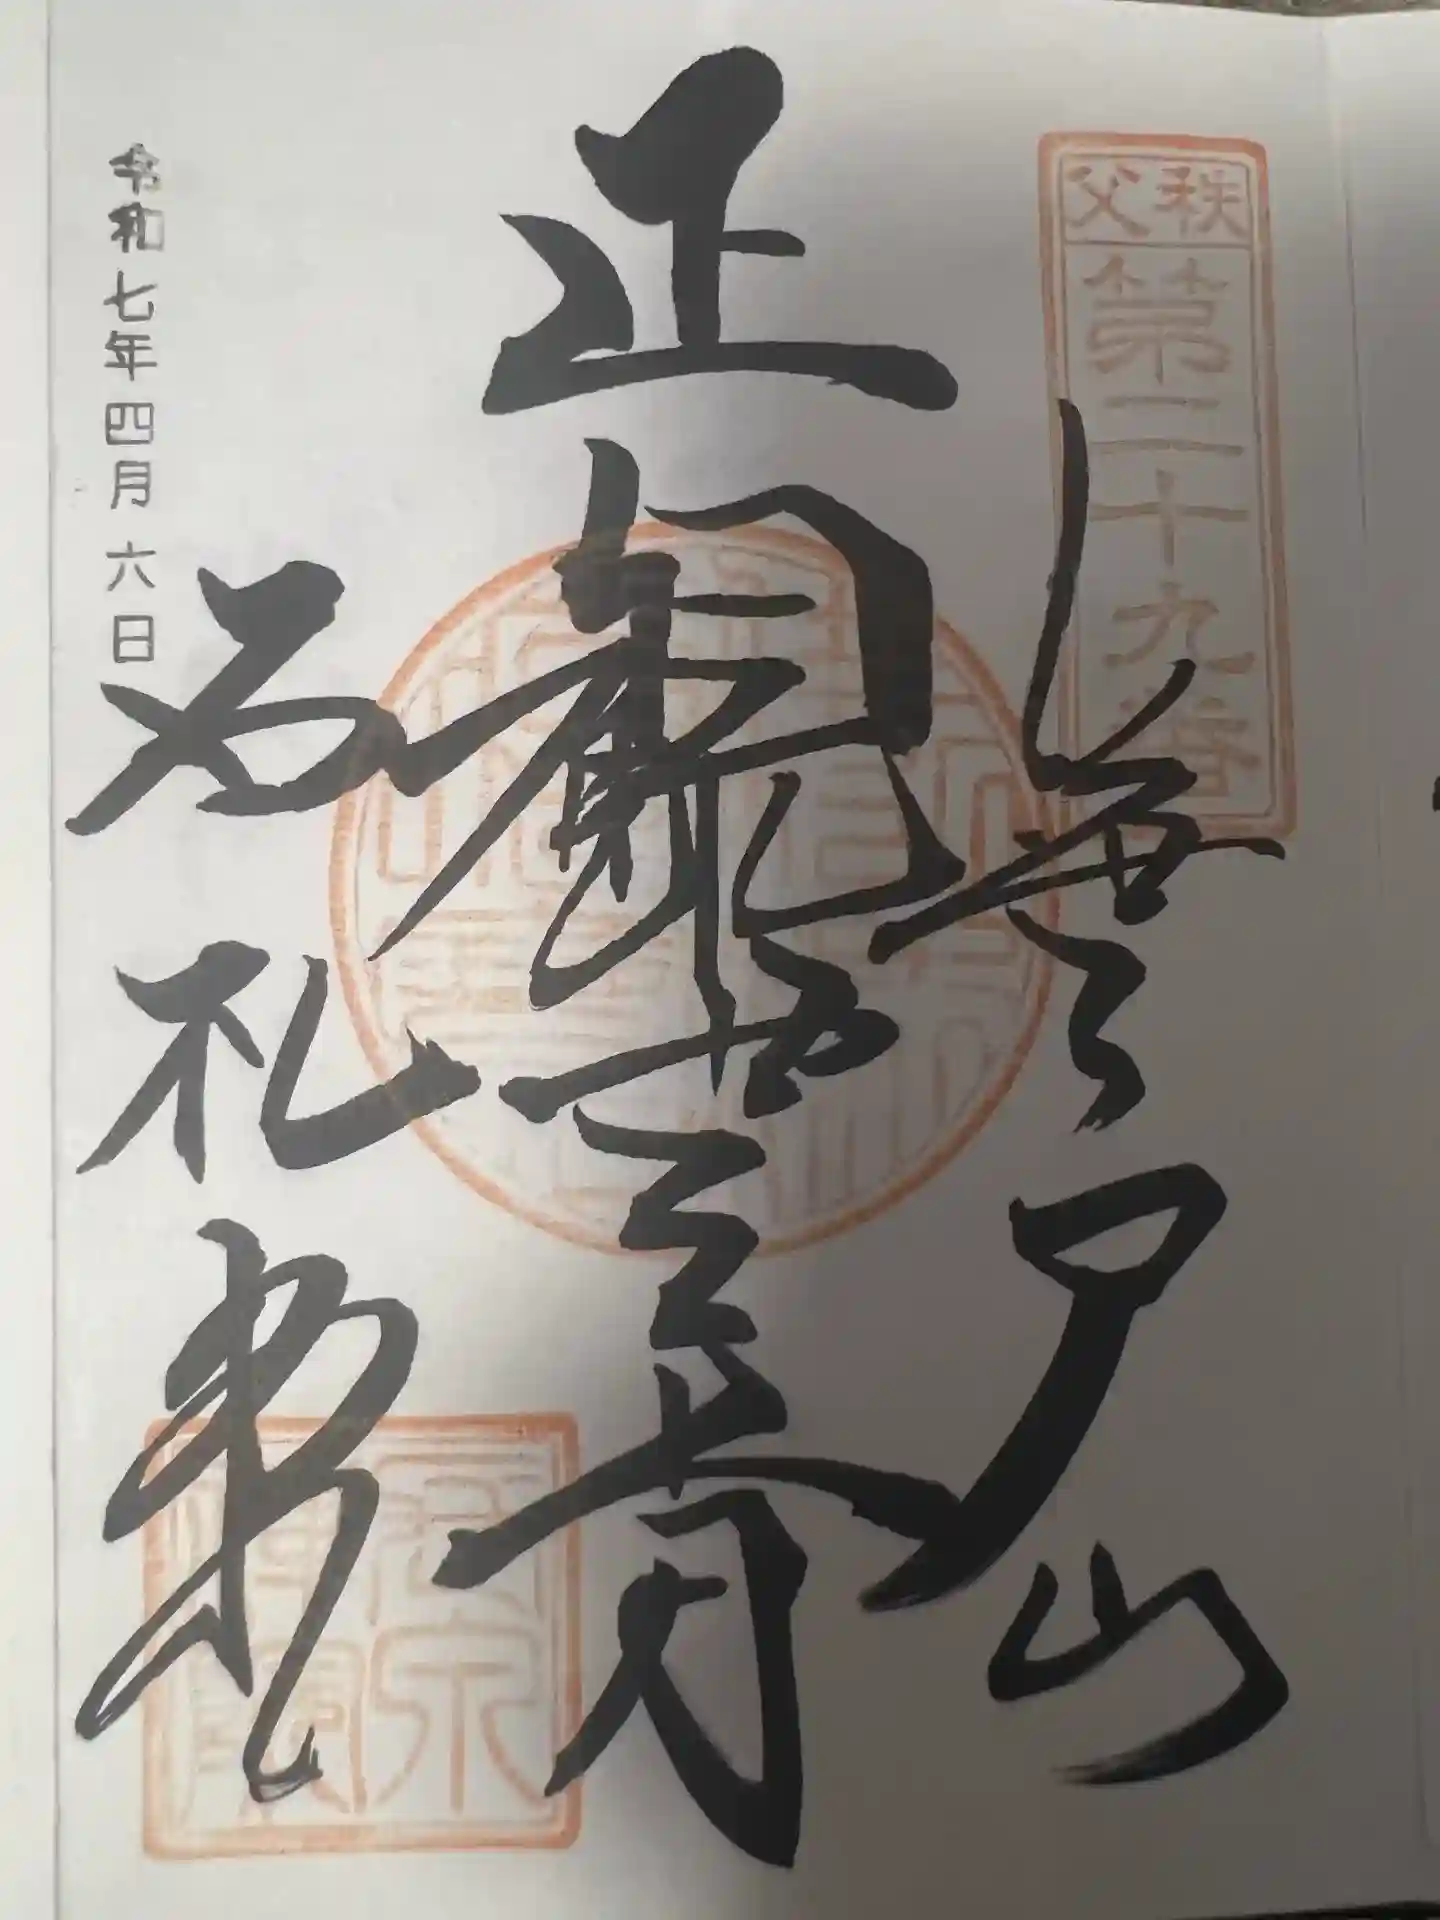 秩父
第二十九番
笹戸山
正観世音
石札堂
令和七年四月六日